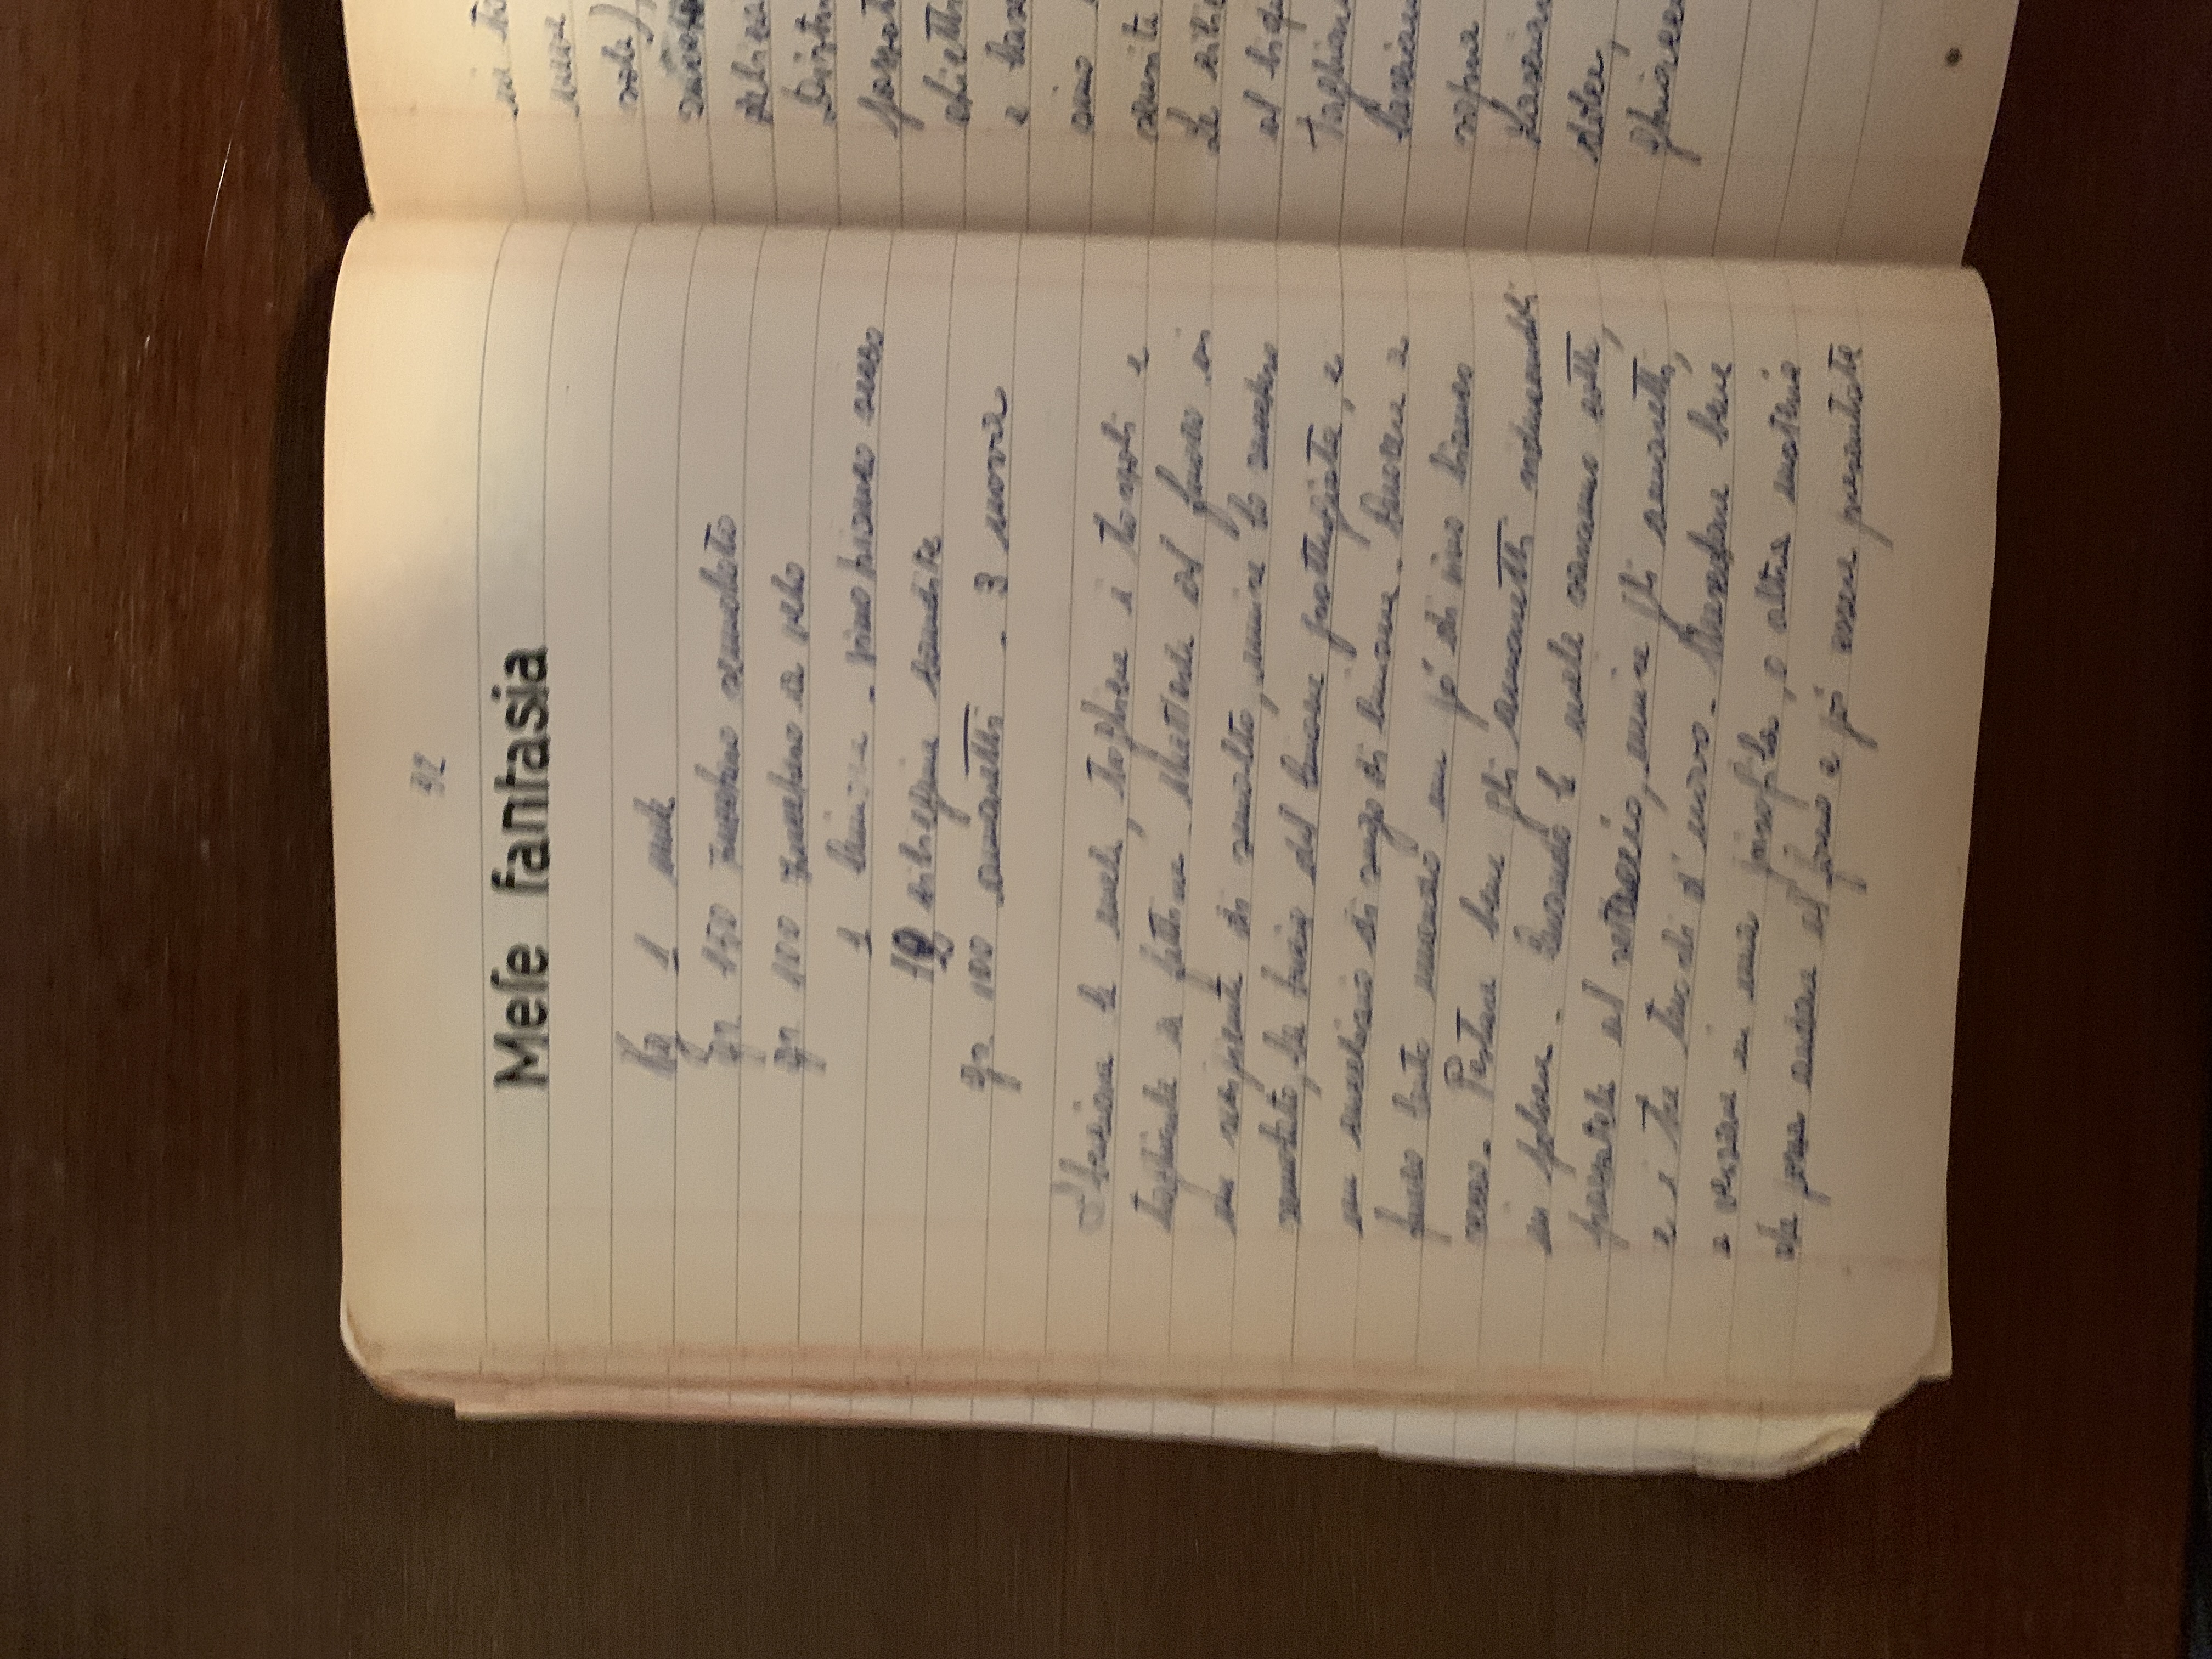 92
Mele fantasia
Kg 1 mele
gr. 150 zucchero semolato
gr. 100 zucchero a velo
1 limone - vino bianco secco
12 ciliegine candite
gr. 100 amaretti - 3 uova
Sbucciare le mele, togliere i torsoli e
tagliarle a fettine. Metterle al fuoco in
un recipiente di smalto, unire lo zucchero
semolato, la buccia del limone grattugiata, e
un cucchiaio di sugo di limone. Cuocere a
fuoco lento unendo un pó di vino bianco
secco. Pestare bene gli amaretti riducendoli
in polvere. Quando le mele saranno cotte,
passatele al setaccio, unire gli amaretti,
e i tre tuorli d'uovo. Mescolare bene
e versare in una pirofila, o altra materia
che possa andare al forno e pó essere presentate
in
neve
sale),
zucchero
Distri
e
sino
al
Tagliare
sopra
dolce,